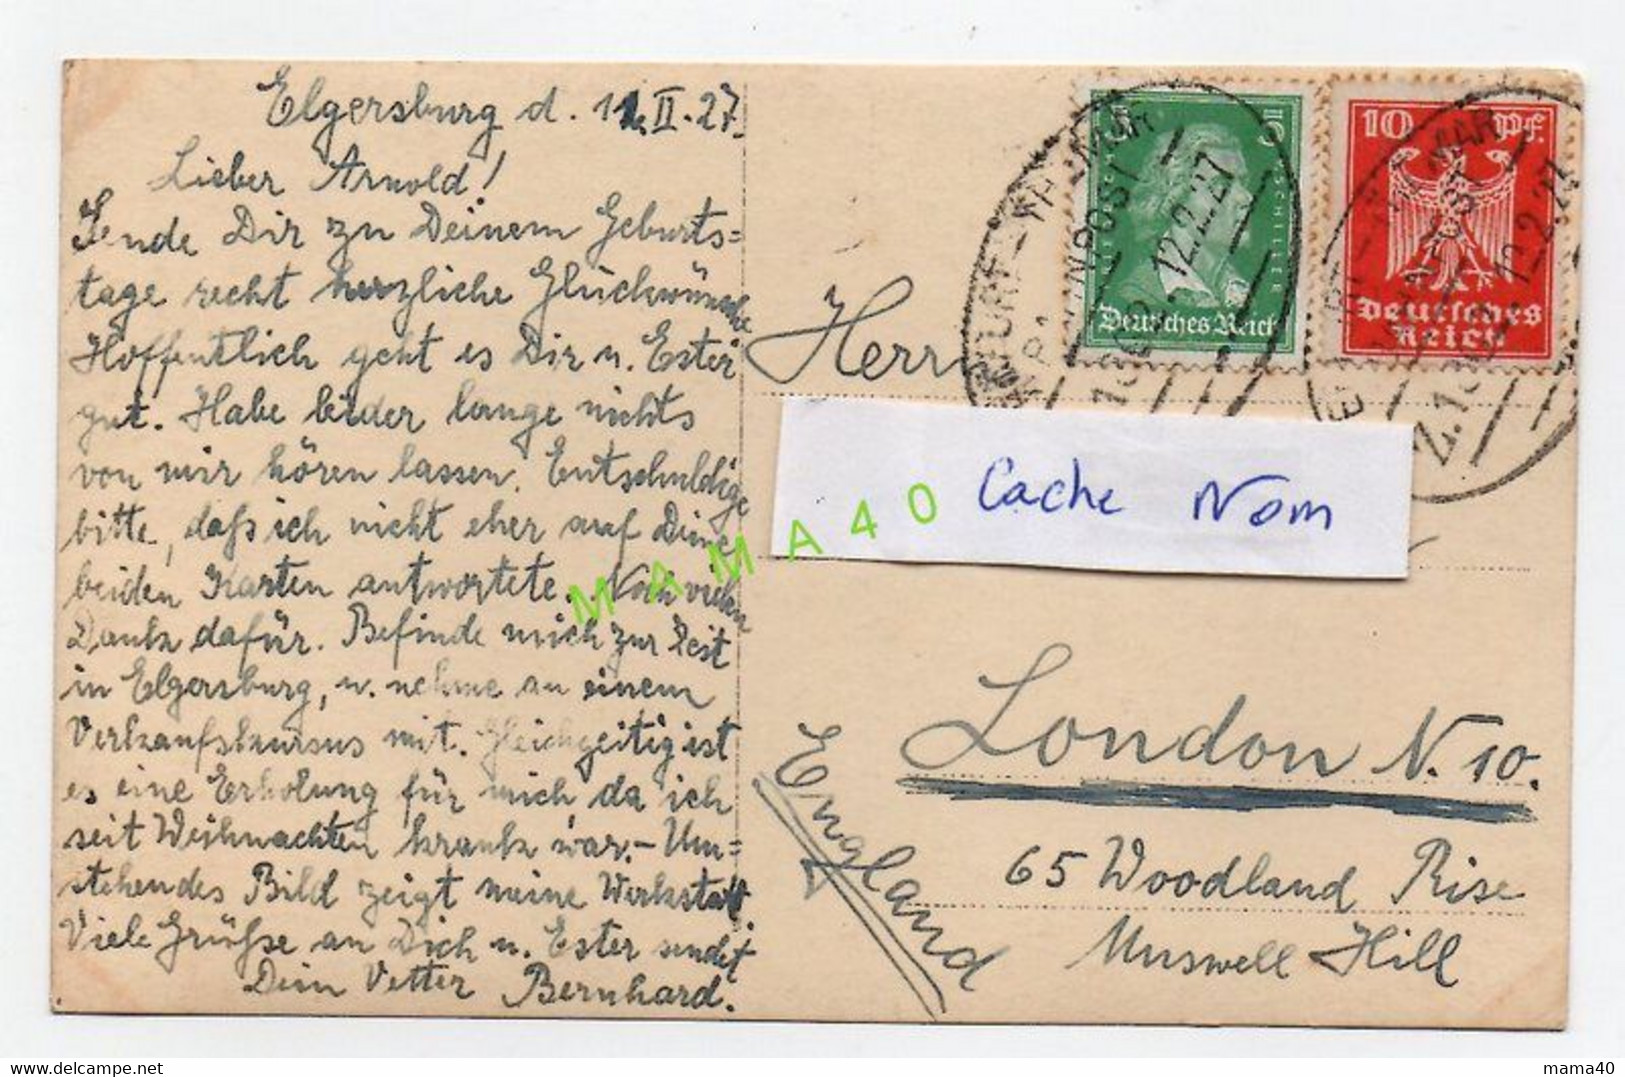 Elgersburg d. 11. II. 27.
Lieber Arnold!
Sende Dir zu Deinem Geburts=
tage recht herzliche Glückwünsche
Hoffentlich geht es Dir u. Ester
gut. Habe leider lange nichts
von mir hören lassen. Entschuldige
bitte, daß ich nicht eher auf Deine
beiden Karten antwortete. Noch vielen
Dank dafür. Befinde mich zur Zeit
in Elgersburg, u. nehme an einem
Verkaufskursus mit. Gleichzeitig ist
es eine Erholung für mich, da ich
seit Weihnachten krank war. – Um=
stehendes Bild zeigt meine Werkstatt
Viele Grüße an Dich u. Ester sendet
Dein Vetter Bernhard.
Herrn
Cache Nom
MAMA40
London N. 10.
65 Woodland Rise
Muswell Hill
England
5
SCHILLER
Deutsches Reich
10 Pf.
Deutsches
Reich
BAHNPOST
12.2.27
12.2.27
mama40